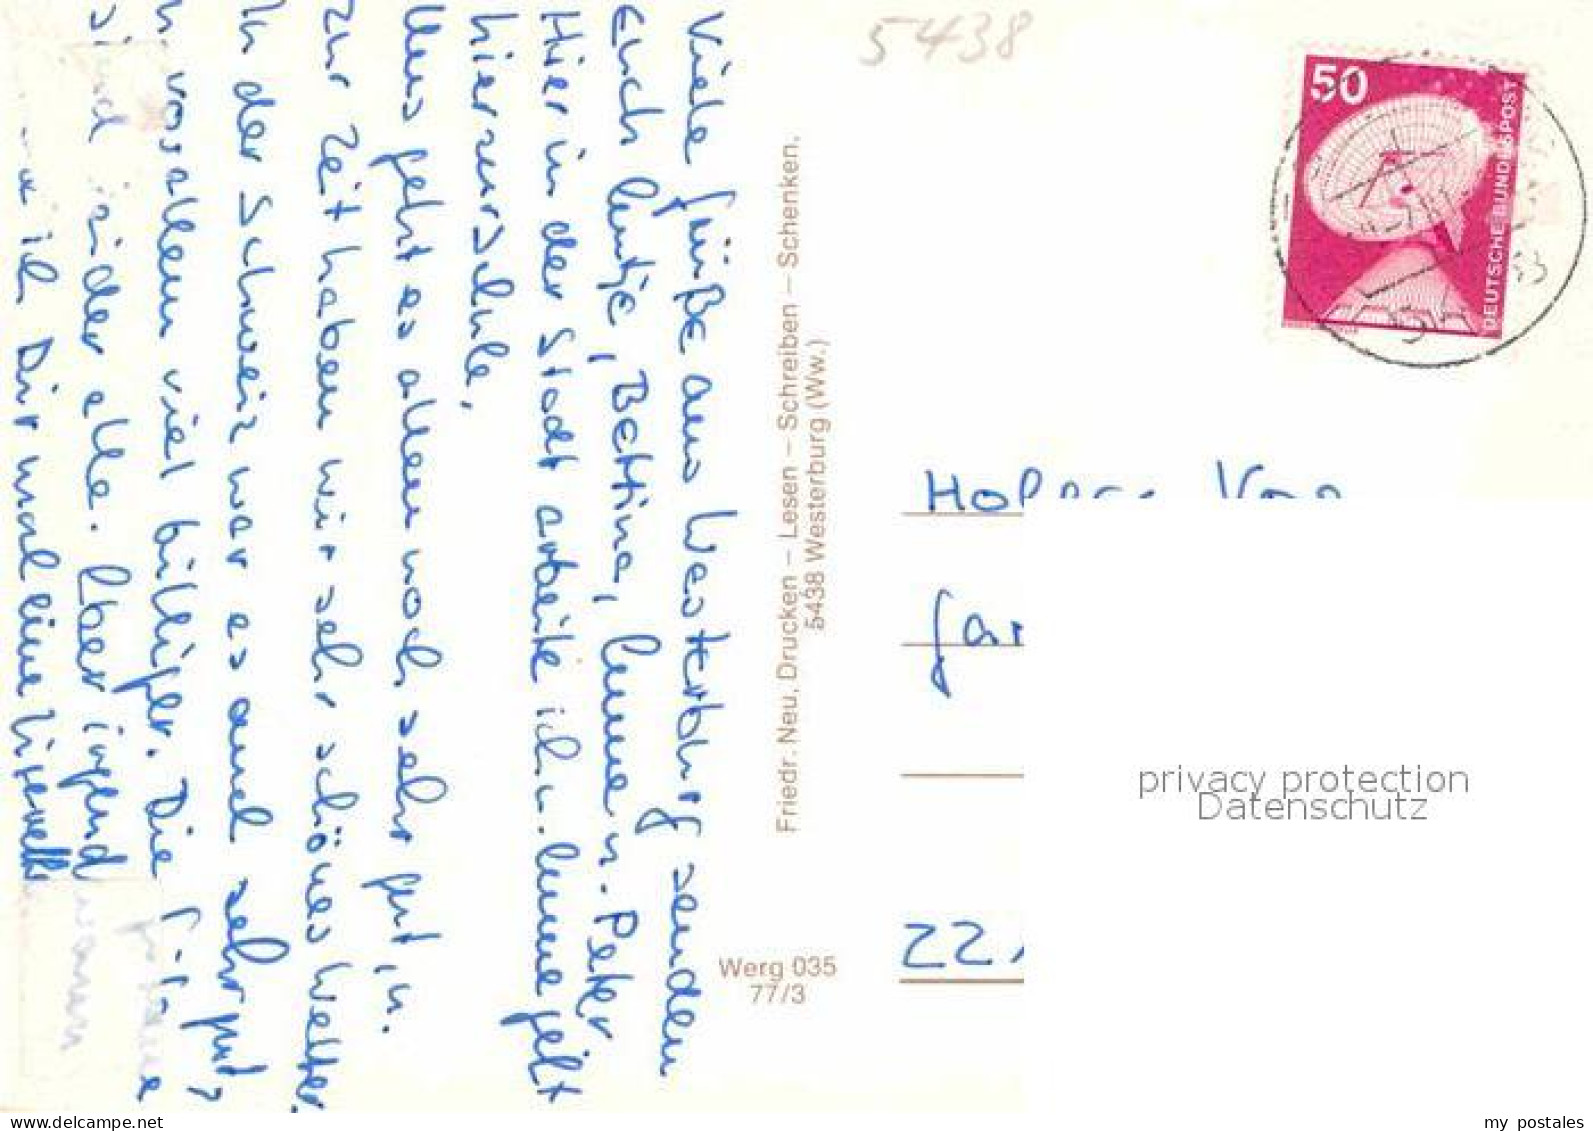 Viele Grüße aus Westerburg senden
Euch Antje, Bettina, Imme u. Peter
Hier in der Stadt arbeite ich u. Imme geht
hier zur Schule.
Uns geht es allen noch sehr gut, u.
zur Zeit haben wir sehr schönes Wetter.
In der Schweiz war es auch sehr gut,
u. vor allem viel billiger. Die
sind leider alle. Aber irgendwann
ich Dir mal eine
5438
50
DEUTSCHE BUNDESPOST
Friedr. Neu, Drucken – Lesen – Schreiben – Schenken.
5438 Westerburg (Ww.)
Werg 035
77/3
22
privacy protection
Datenschutz
www.delcampe.net
my_postales